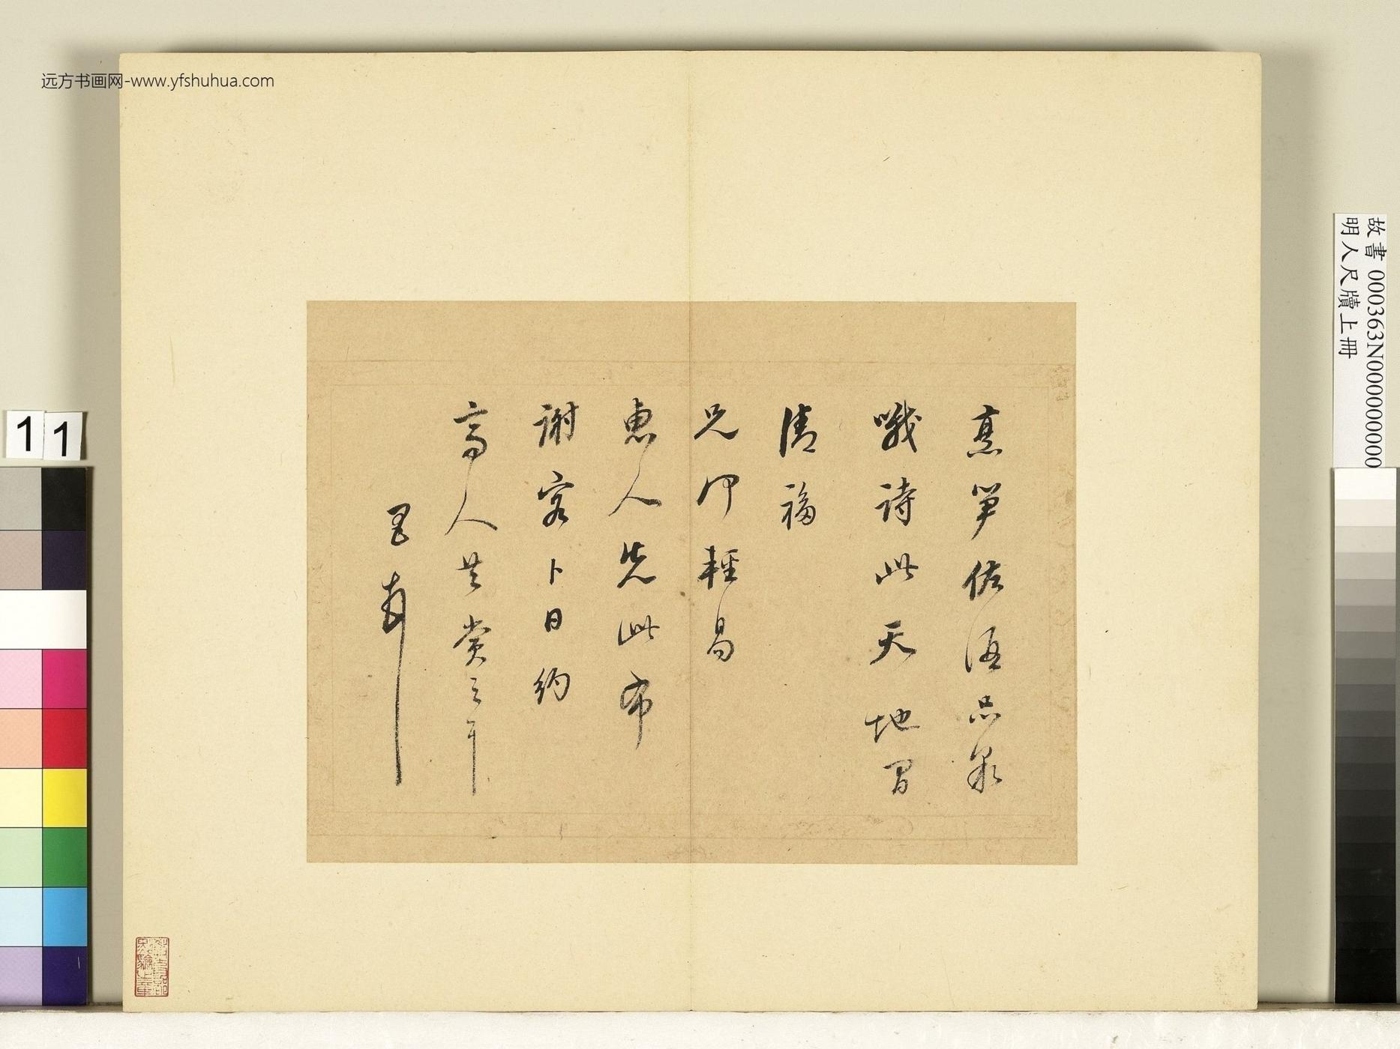 烹笋佐酒品泉
哦詩此天地間
清福
兄何輕易
惠人先此布
謝容卜日約
高人共賞之耳
远方书画网-www.yfshuhua.com
11
故書 000363N000000000
明人尺牘上冊